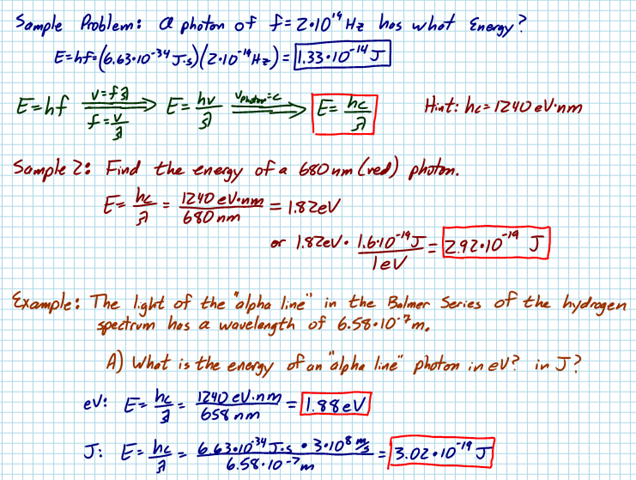 Sample Problem: A photon of f = 2·10¹⁹ Hz has what Energy?
E=hf=(6.63·10⁻³⁴ J·s)(2·10¹⁹ Hz) = 1.33·10⁻¹⁴ J
E=hf v=fλ f=v/λ E=hv/λ v_photon=c E=hc/λ Hint: hc=1240 eV·nm
Sample 2: Find the energy of a 680 nm (red) photon.
E=hc/λ = 1240 eV·nm/680 nm = 1.82eV
or 1.82eV · 1.6·10⁻¹⁹J/1eV = 2.92·10⁻¹⁹ J
Example: The light of the "alpha line" in the Balmer Series of the hydrogen
spectrum has a wavelength of 6.58·10⁻⁷m.
A) What is the energy of an "alpha line" photon in eV? in J?
eV: E=hc/λ = 1240 eV·nm/658 nm = 1.88 eV
J: E=hc/λ = 6.63·10⁻³⁴ J·s · 3·10⁸ m/s/6.58·10⁻⁷ m = 3.02·10⁻¹⁹ J